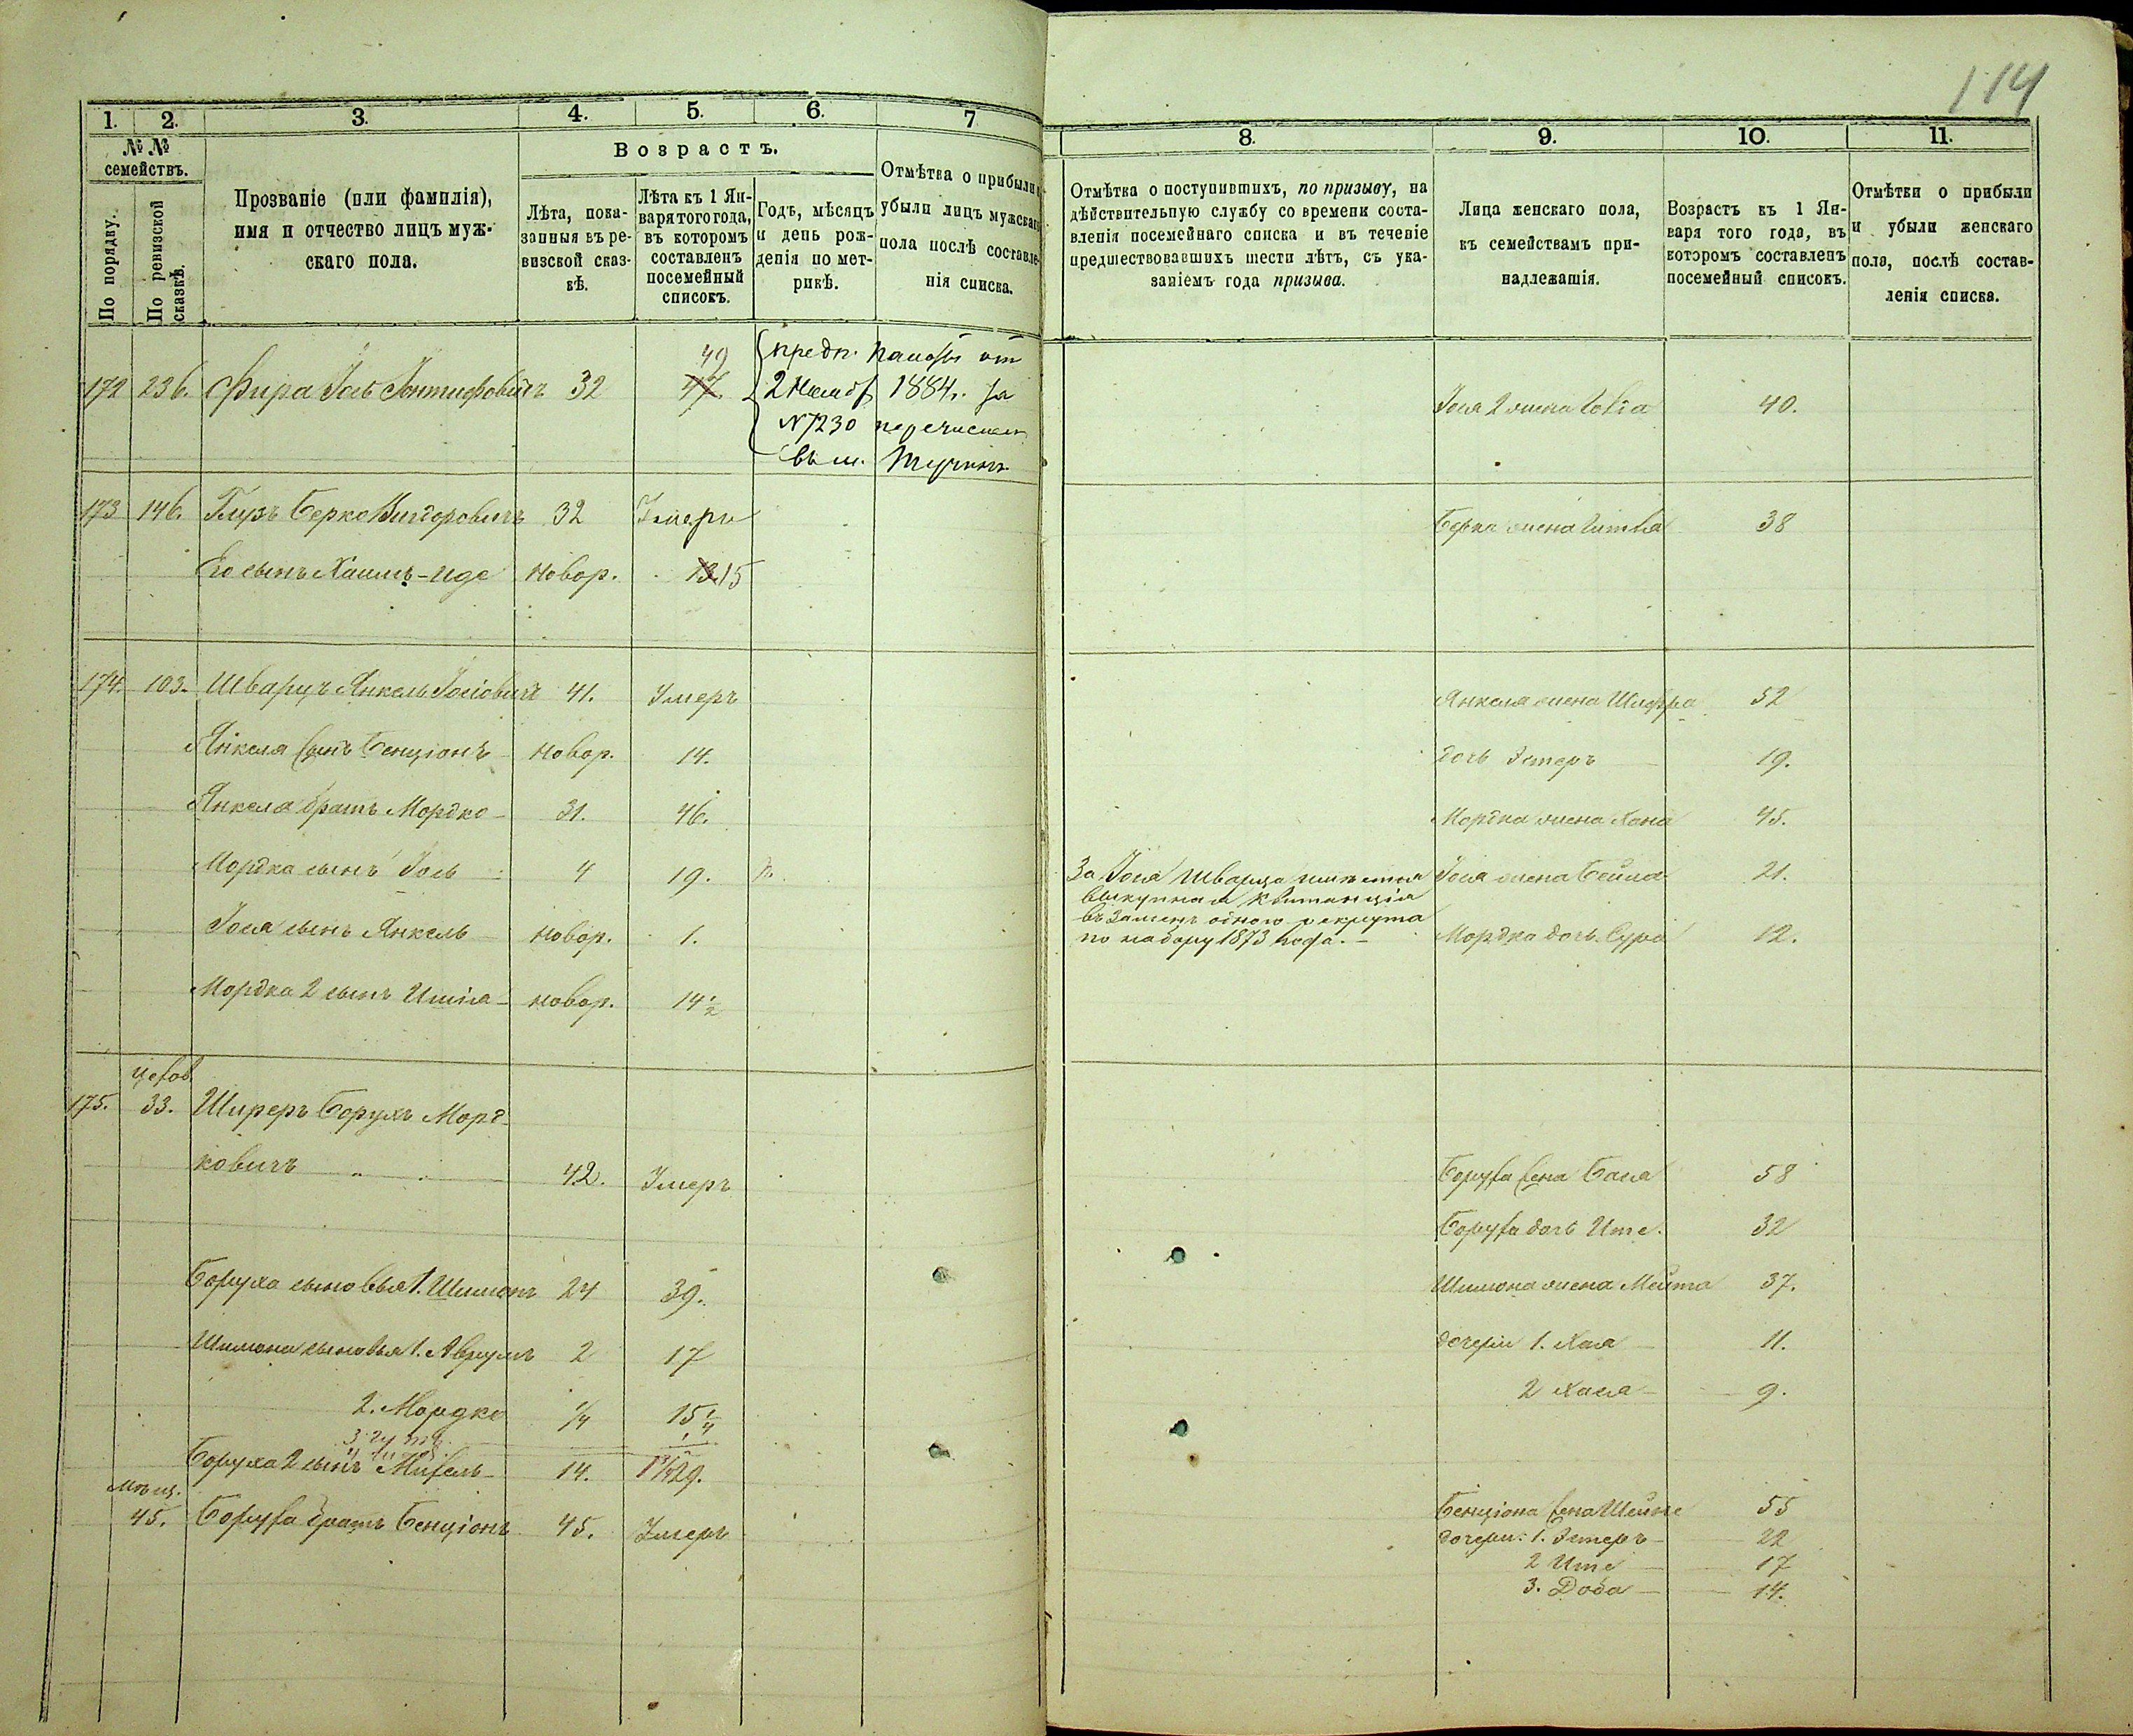 114
1. 2. 3. 4. 5. 6. 7
№ №
семействъ.
По порядку.
По ревизской
сказкѣ.
Прозваніе (или фамилія),
имя и отчество лицъ муж-
скаго пола.
Возрастъ.
Лѣта, пока-
занныя въ ре-
визской сказ-
кѣ.
Лѣта къ 1 Ян-
варя того года,
въ которомъ
составленъ
посемейный
списокъ.
Годъ, мѣсяцъ
и день рож-
денія по мет-
рикѣ.
Отмѣтка о прибыли
убыли лицъ мужскаго
пола послѣ составле-
нія списка.
172 236. Фира Іось 32 49 47.
предп. Палаты от
2 Нояб 1884 г. за
№ 7230 перечислен
въ м.
173 146. Глузъ Берко Вигдоровичъ 32 Умеръ
Его сынъ Хаимъ-Иде Новор. 13 15
174. 103. Шварцъ Янкель Іосіовичъ 41. Умеръ
Янкеля сынъ Бенціонъ Новор. 14.
Янкеля братъ Мордко 31. 46.
Мордка сынъ Іось 4 19.
Іося сынъ Янкель новор. 1.
Мордка 2 сынъ новор. 14 1/2
175. 33. Ширеръ Борухъ Морд-
ковичъ 42. Умеръ
Боруха сыновья 1. Шимонъ 24 39.
Шимона сыновья 1. Аврумъ 2 17
2. Мордко 1/4 15 1/4
Боруха 2 сынъ 14. 29.
мѣщ.
45. Боруха братъ Бенціонъ 45. Умеръ
8. 9. 10. 11.
Отмѣтка о поступившихъ, по призыву, на
дѣйствительную службу со времени соста-
вленія посемейнаго списка и въ теченіе
предшествовавшихъ шести лѣтъ, съ ука-
заніемъ года призыва.
Лица женскаго пола,
къ семействамъ при-
надлежащія.
Возрастъ къ 1 Ян-
варя того года, въ
которомъ составленъ
посемейный списокъ.
Отмѣтки о прибыли
и убыли женскаго
пола, послѣ состав-
ленія списка.
Іося 2 жена 40.
Берка жена 38
Янкеля жена Шифра 52
дочь Эстеръ 19.
Мордка жена Хана 45.
За Іося Шварца имѣется
выкупная квитанція
въ замѣнъ одного рекрута
по набору 1873 года. –
Іося жена Бейла 21.
Мордка дочь Сура 12.
Боруха жена Бася 58
Боруха дочь Ите. 32
Шимона жена Мейта 37.
дочери 1. Хая 11.
2 Хася 9.
Бенціона жена Шейне 55
дочери: 1. Эстеръ 22
2 Ите 17
3. Доба 14.